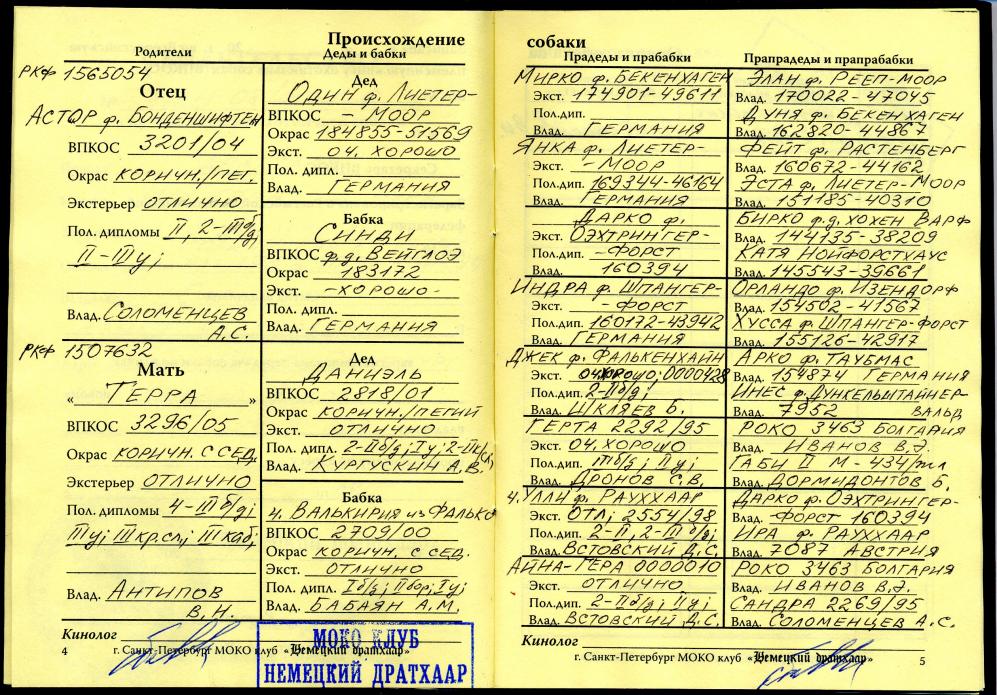 Происхождение
Родители
Деды и бабки
РКФ 1565054
Отец
АСТОР ф. БОНДЕНШИФТЕН
ВПКОС 3201/04
Окрас КОРИЧН./ПЕГ.
Экстерьер ОТЛИЧНО
Пол. дипломы II, 2-III б/д;
II-III у;
Влад. СОЛОМЕНЦЕВ
А.С.
РКФ 1507632
Мать
« ТЕРРА »
ВПКОС 3296/05
Окрас КОРИЧН. С СЕД.
Экстерьер ОТЛИЧНО
Пол. дипломы 4-III б/д;
III у; III кр.сл; III каб;
Влад. АНТИПОВ
В.Н.
Дед
ОДИН ф. ЛИЕТЕР-
ВПКОС - МООР
Окрас 184855-51569
Экст. ОЧ. ХОРОШО
Пол. дипл.
Влад. ГЕРМАНИЯ
Бабка
СИНДИ
ВПКОС ф.д. ВЕЙГЛОЭ
Окрас 183172
Экст. -ХОРОШО-
Пол. дипл.
Влад. ГЕРМАНИЯ
Дед
ДАНИЭЛЬ
ВПКОС 2818/01
Окрас КОРИЧН./ПЕГИЙ
Экст. ОТЛИЧНО
Пол. дипл. 2-II б/д; I у; 2-III
Влад. КУРГУСКИН А.В.
Бабка
ч. ВАЛЬКИРИЯ из ФАЛЬКО
ВПКОС 2709/00
Окрас КОРИЧН. С СЕД.
Экст. ОТЛИЧНО
Пол. дипл. I б/д; II вор; I у;
Влад. БАБАЯН А.М.
Кинолог
4
г. Санкт-Петербург МОКО клуб «Немецкий дратхаар»
МОКО КЛУБ
НЕМЕЦКИЙ ДРАТХААР
собаки
Прадеды и прабабки
Прапрадеды и прапрабабки
МИРКО ф. БЕКЕНХАГЕН
Экст. 174901-49611
Пол.дип.
Влад. ГЕРМАНИЯ
ЯНКА ф. ЛИЕТЕР-
Экст. - МООР
Пол.дип. 169344-46164
Влад. ГЕРМАНИЯ
ДАРКО ф.
Экст. ОЭХТРИНГЕР-
Пол.дип. -ФОРСТ
Влад. 160394
ИНДРА ф. ШПАНГЕР-
Экст. - ФОРСТ
Пол.дип. 160172-43942
Влад. ГЕРМАНИЯ
ДЖЕК ф. ФАЛЬКЕНХАЙН
Экст. ОЧ.ХОРОШО; 0000428
Пол.дип. 2-II б/д;
Влад. ШКЛЯЕВ Б.
ГЕРТА 2292/95
Экст. ОЧ. ХОРОШО
Пол.дип. III б/д; II у;
Влад. ДРОНОВ С.В.
ч. УЛЛИ ф. РАУХХААР
Экст. ОТЛ; 2554/98
Пол.дип. 2-II, 2-III б/д;
Влад. ВСТОВСКИЙ Д.С.
АЙНА-ГЕРА 0000010
Экст. ОТЛИЧНО
Пол.дип. 2-II б/д; II у;
Влад. ВСТОВСКИЙ Д.С.
ЭЛАН ф. РЕЕП-МООР
Влад. 170022-47045
ДУНЯ ф. БЕКЕНХАГЕН
Влад. 162820-44867
ФЕЙТ ф. РАСТЕНБЕРГ
Влад. 160672-44162
ЭСТА ф. ЛИЕТЕР-МООР
Влад. 151185-40310
БИРКО ф.д. ХОХЕН ВАРФ
Влад. 144135-38209
КАТЯ НОЙФОРСТХАУС
Влад. 145543-39661
ОРЛАНДО ф. ИЗЕНДОРФ
Влад. 154502-41567
ХУССА ф. ШПАНГЕР-ФОРСТ
Влад. 155126-42917
АРКО ф. ТАУБМАС
Влад. 154874 ГЕРМАНИЯ
ИНЕС ф. ДУНКЕЛЬШТАЙНЕР-
Влад. 7952 ВАЛЬД
РОКО 3463 БОЛГАРИЯ
Влад. ИВАНОВ В.Э.
ГАБИ II М-434/тл
Влад. ДОРМИДОНТОВ Б.
ДАРКО ф. ОЭХТРИНГЕР-
Влад. -ФОРСТ 160394
ИРА ф. РАУХХААР
Влад. 7087 АВСТРИЯ
РОКО 3463 БОЛГАРИЯ
Влад. ИВАНОВ В.Э.
САНДРА 2269/95
Влад. СОЛОМЕНЦЕВ А.С.
Кинолог
г. Санкт-Петербург МОКО клуб «Немецкий дратхаар»
5